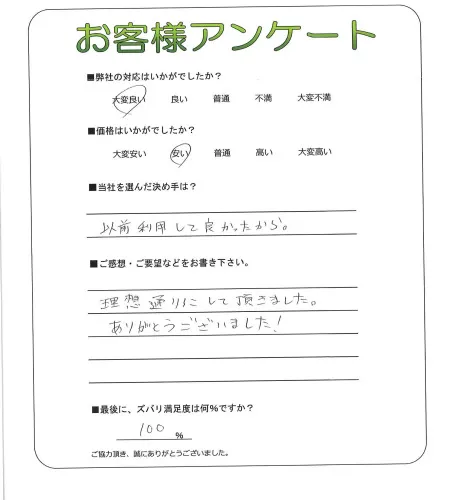 お客様アンケート
■弊社の対応はいかがでしたか？
大変良い 良い 普通 不満 大変不満
■価格はいかがでしたか？
大変安い 安い 普通 高い 大変高い
■当社を選んだ決め手は？
以前利用して良かったから。
■ご感想・ご要望などをお書き下さい。
理想通りにして頂きました。
ありがとうございました！
■最後に、ズバリ満足度は何％ですか？
100 ％
ご協力頂き、誠にありがとうございました。